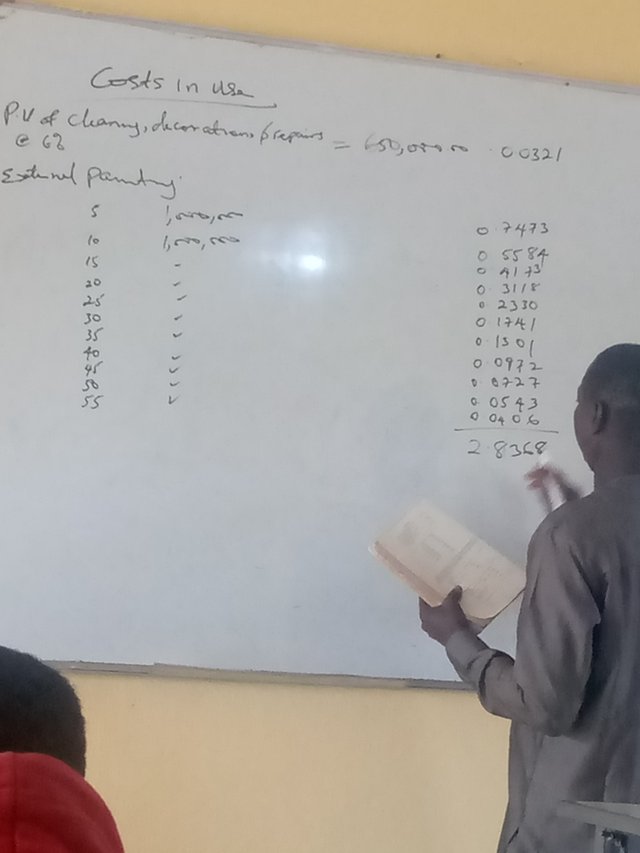 Costs in use
P.V of cleaning, decorations & repairs = 650,000.00 0.0321
@ 6%
External Painting:
5 1,000,000 0.7473
10 1,000,000 0.5584
15 " 0.4173
20 " 0.3118
25 " 0.2330
30 " 0.1741
35 " 0.1301
40 0.0972
45 " 0.0727
50 " 0.0543
55 " 0.0406
2.8368